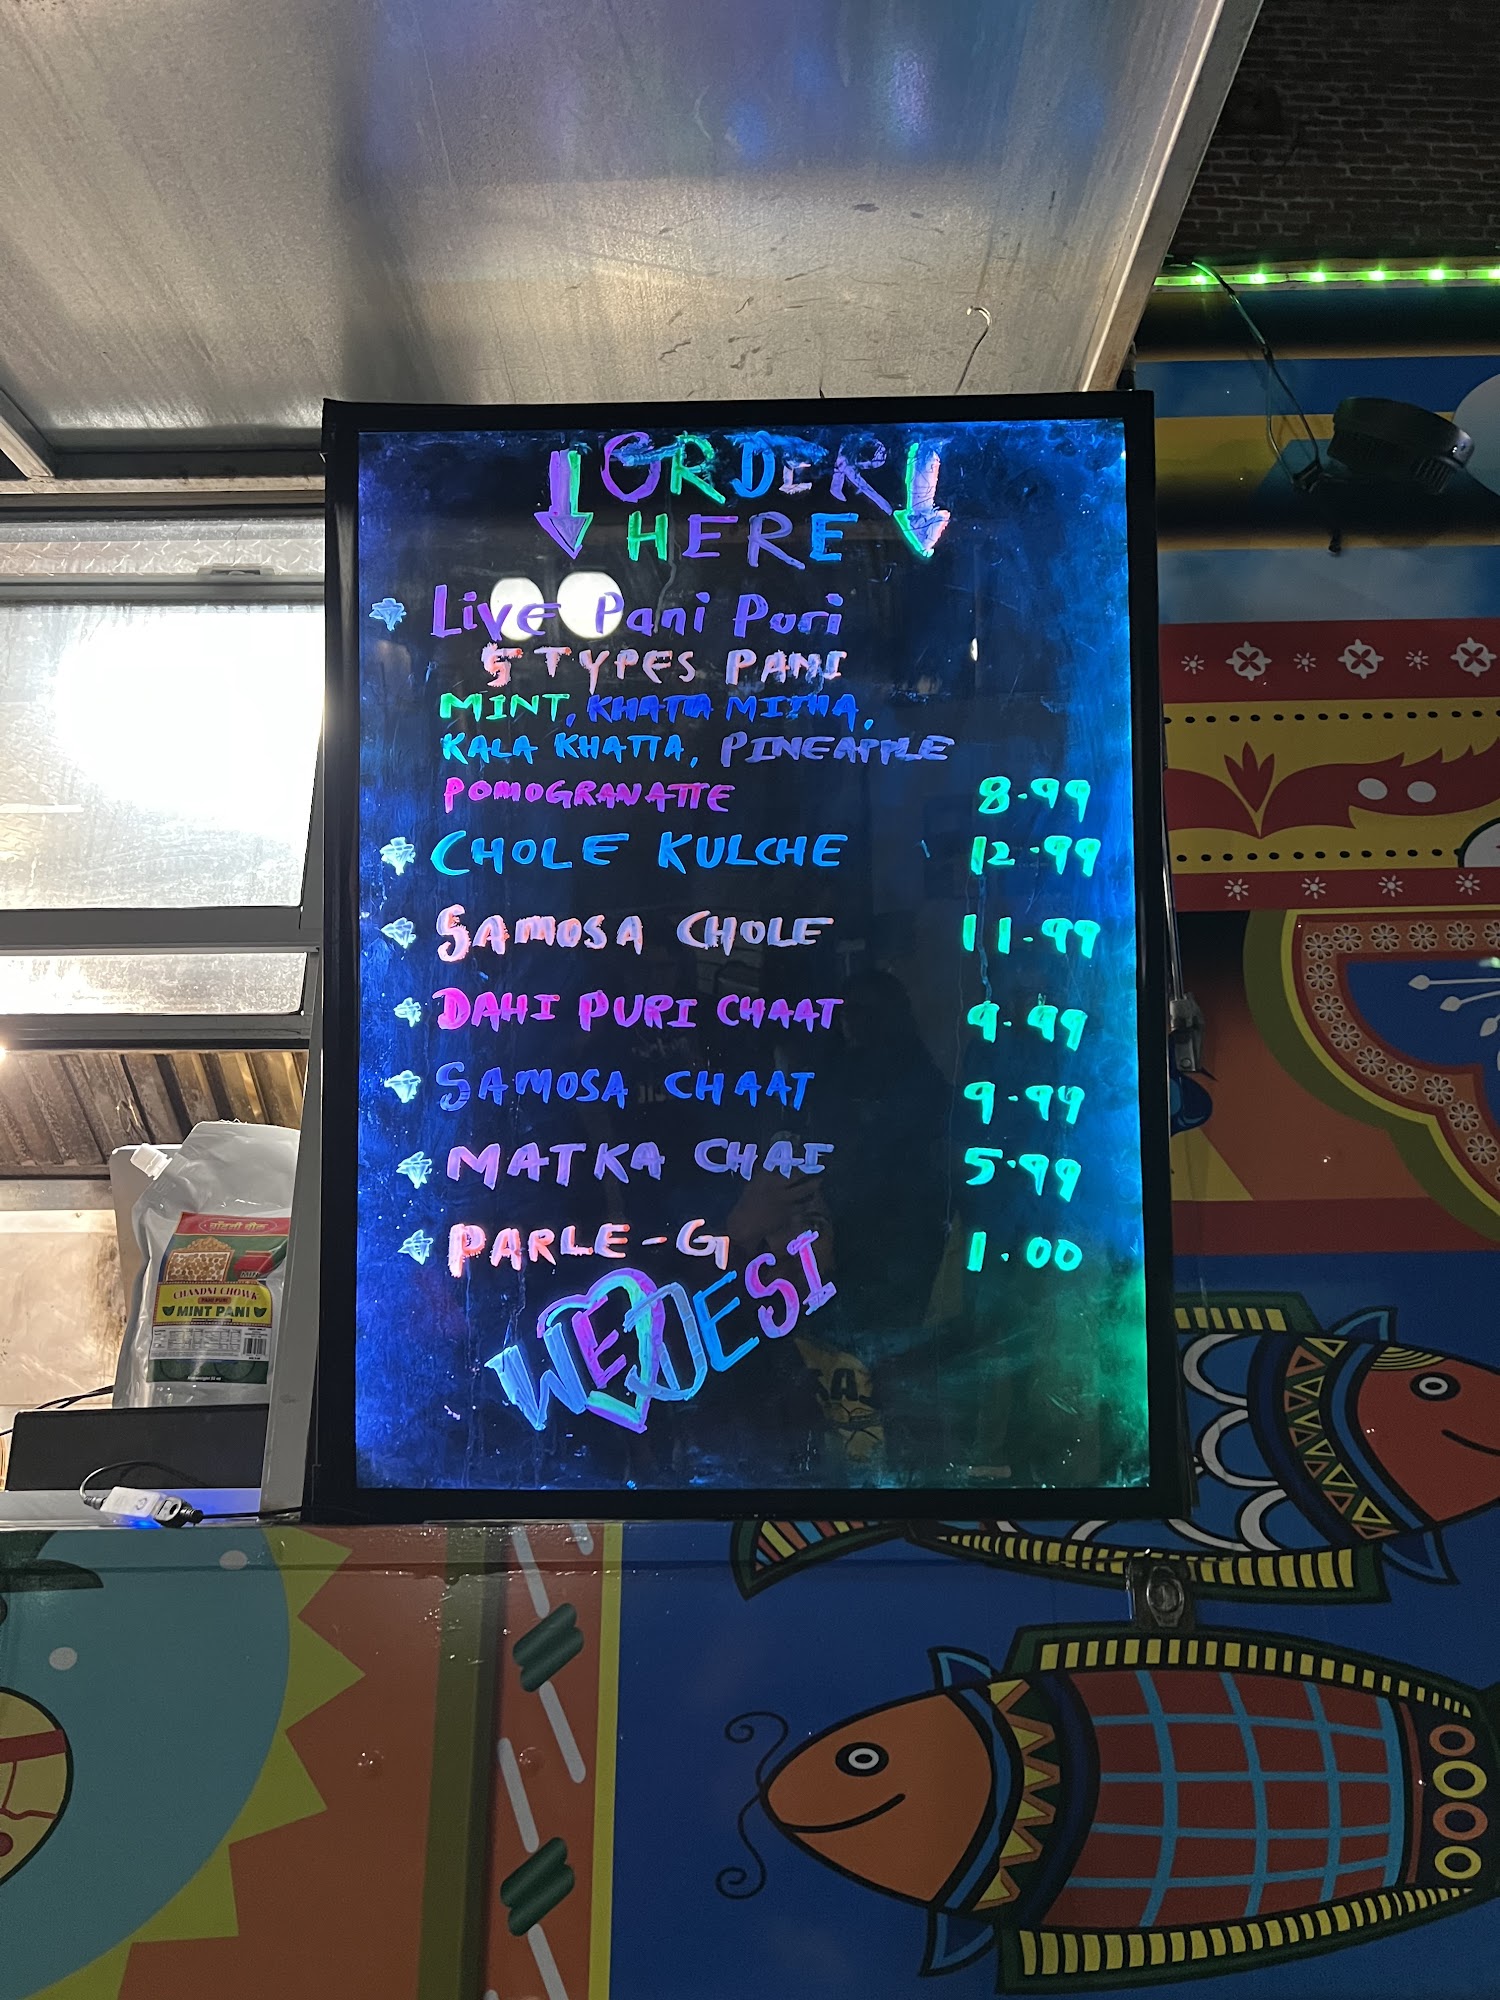 ORDER
HERE
Live Pani Puri
5 TYPES PANI
MINT, KHATTA MITHA,
KALA KHATTA, PINEAPPLE
POMOGRANATTE 8.99
CHOLE KULCHE 12.99
SAMOSA CHOLE 11.99
DAHI PURI CHAAT 9.99
SAMOSA CHAAT 9.99
MATKA CHAI 5.99
PARLE-G 1.00
WE DESI
CHANDNI CHOWK
PANI PURI
MINT PANI